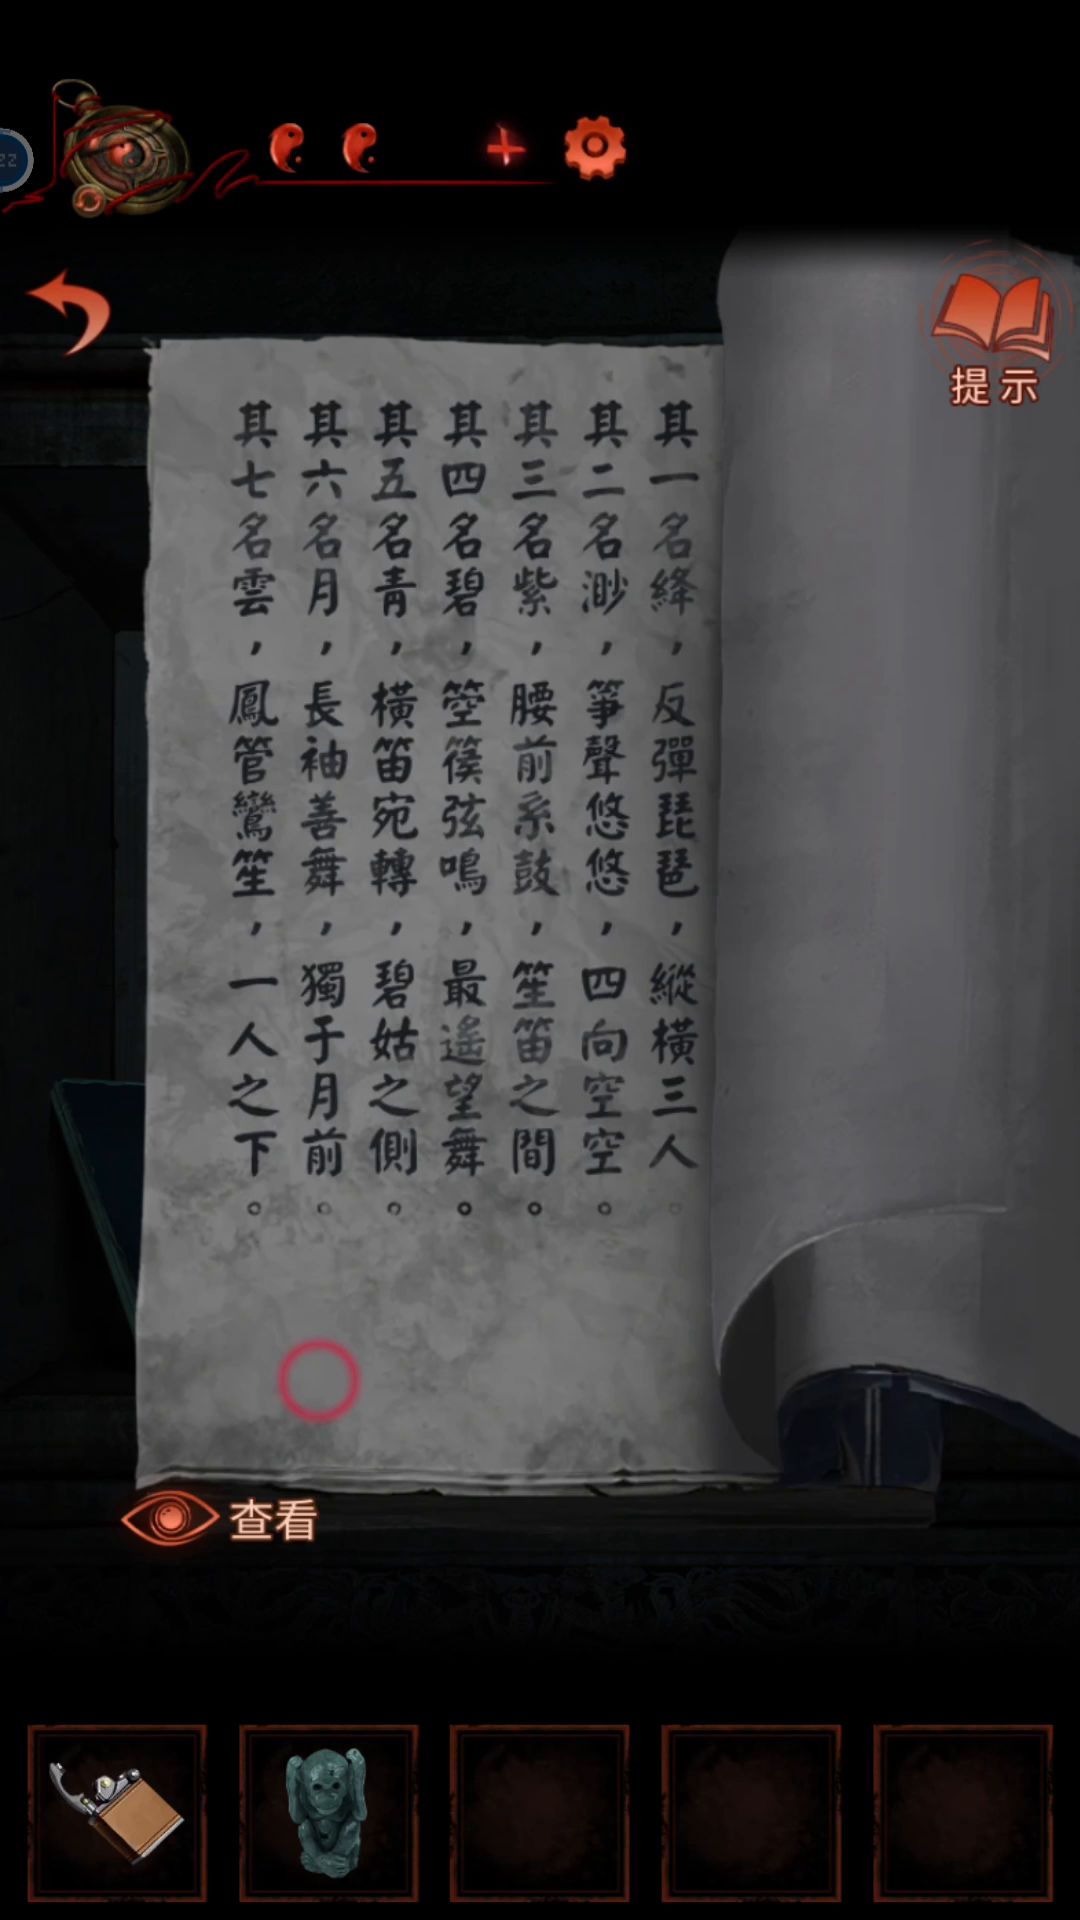 22
提示
其一名絳，反彈琵琶，縱橫三人。
其二名渺，箏聲悠悠，四向空空。
其三名紫，腰前系鼓，笙笛之間。
其四名碧，箜篌弦鳴，最遙望舞。
其五名青，橫笛宛轉，碧姑之側。
其六名月，長袖善舞，獨于月前。
其七名雲，鳳管鸞笙，一人之下。
查看